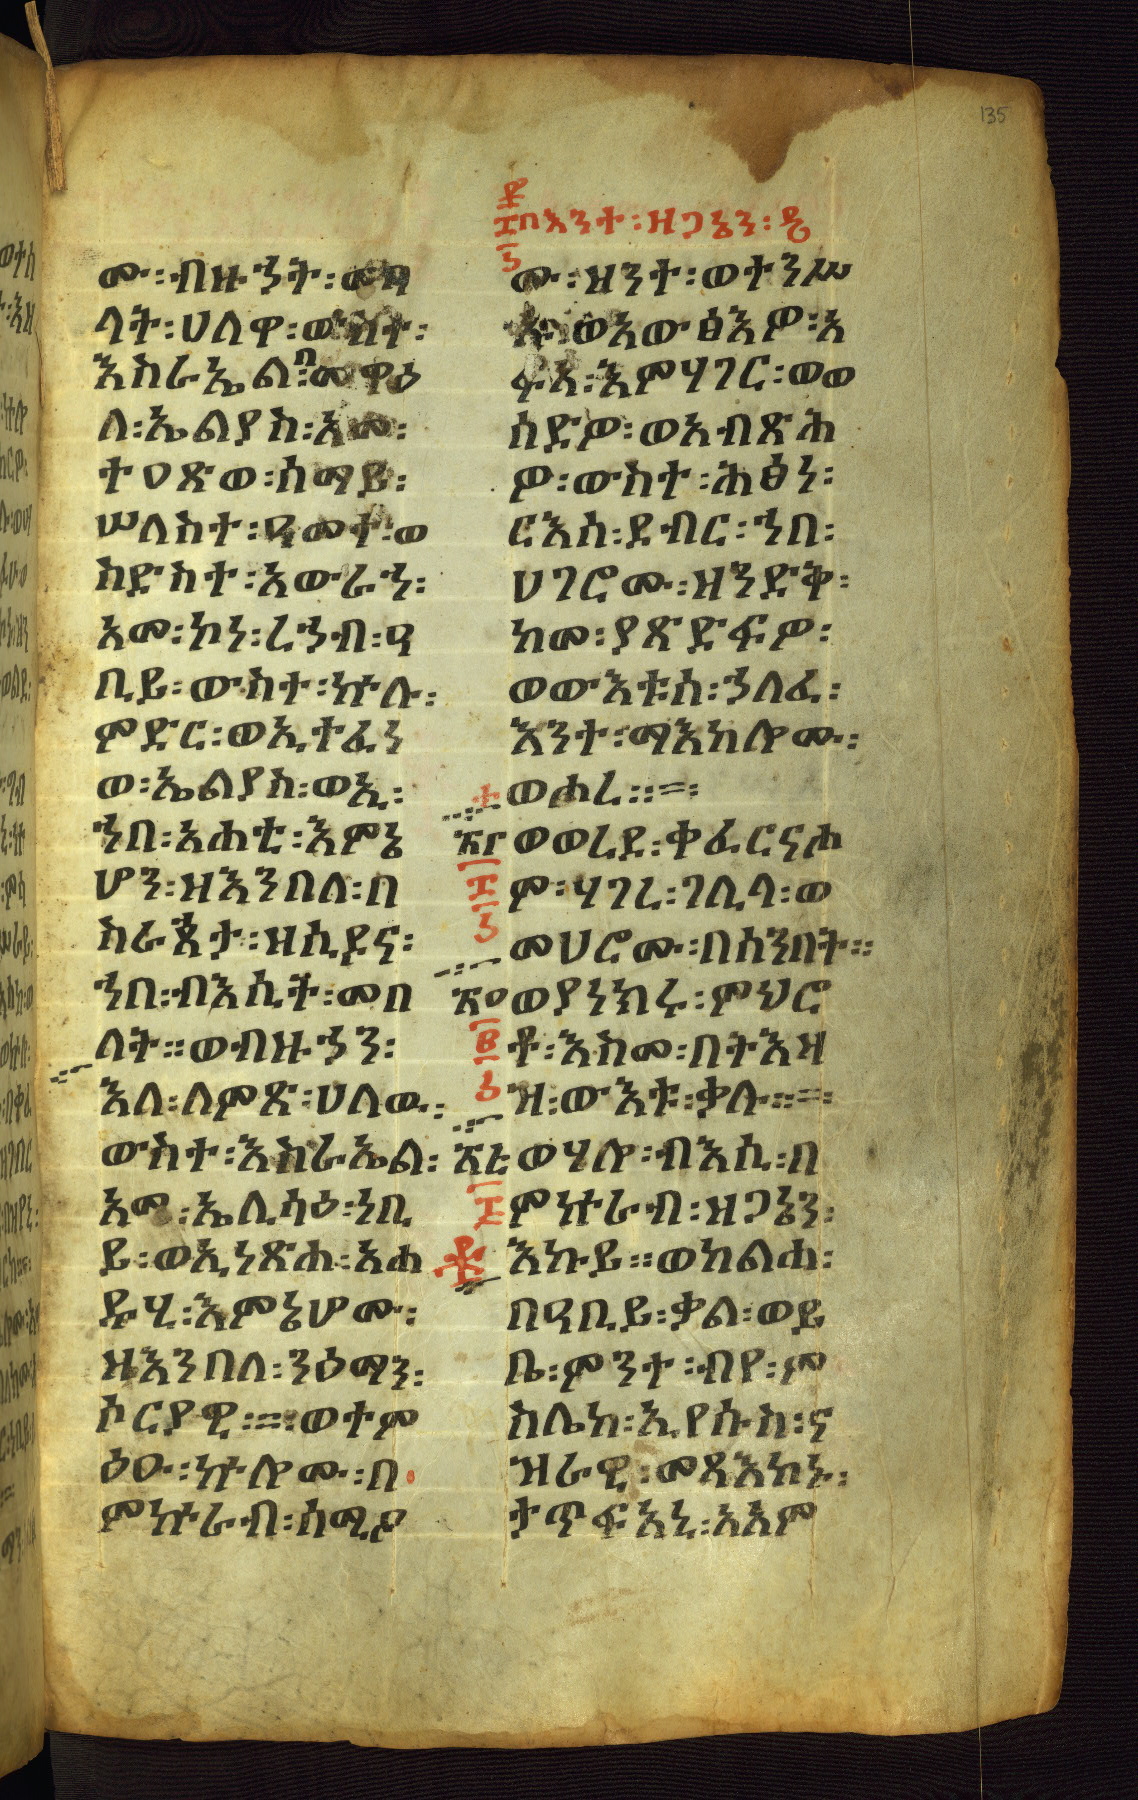 135
በእንተ፡ዘጋኔን፡ዴ
ሙ፡ብዙኃት፡መበ
ላት፡ሀለዋ፡ውስተ፡
እስራኤል፡በመዋዕ
ለ፡ኤልያስ፡አመ፡
ተዐጽወ፡ሰማይ፡
ሠለስተ፡ዓመተ፡ወ
ስድስተ፡አውራኅ፡
አመ፡ኮነ፡ረኀብ፡ዓ
ቢይ፡ውስተ፡ኵሉ፡
ምድር፡ወኢተፈነ
ወ፡ኤልያስ፡ወኢ፡
ኀበ፡አሐቲ፡እምኔ
ሆን፡ዘእንበለ፡በ
ስራጵታ፡ዘሲዶና፡
ኀበ፡ብእሲት፡መበ
ለት፡፡ወብዙኃን፡
እለ፡ለምጽ፡ሀለዉ፡
ውስተ፡እስራኤል፡
አመ፡ኤሊሳዕ፡ነቢ
ይ፡ወኢነጽሐ፡አሐ
ዱሂ፡እምኔሆሙ፡
ዘእንበለ፡ንዕማን፡
ሶርያዊ፡፡ወተም
ዕዑ፡ኵሎሙ፡በ
ምኵራብ፡ሰሚዖ
ሙ፡ዝንተ፡ወተንሥ
ኡ፡ወአውፅእዎ፡አ
ፍአ፡እምሃገር፡ወወ
ሰድዎ፡ወአብጽሕ
ዎ፡ውስተ፡ሕፅነ፡
ርእሰ፡ደብር፡ኀበ፡
ሀገሮሙ፡ዘንድቅ፡
ከመ፡ያጽድፍዎ፡
ወውእቱሰ፡ኃለፈ፡
እንተ፡ማእከሎሙ፡
ወሐረ፡፡
ወወረደ፡ቀፈርናሖ
ም፡ሃገረ፡ገሊላ፡ወ
መሀሮሙ፡በሰንበት፡፡
ወያነክሩ፡ምህሮ
ቶ፡እስመ፡በትእዛ
ዝ፡ውእቱ፡ቃሉ፡፡
ወሃሎ፡ብእሲ፡በ
ምኵራብ፡ዘጋኔን፡
እኩይ፡፡ወከልሐ፡
በዓቢይ፡ቃል፡ወይ
ቤ፡ምንተ፡ብየ፡ም
ስሌከ፡ኢየሱስ፡ና
ዝራዊ፡መጻእከኑ፡
ታጥፍአኒ፡አአም